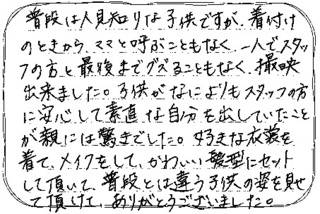 普段は人見知りな子供ですが、着付け
のときから、ママと呼ぶこともなく、一人でスタッ
フの方と最後までグズることもなく、撮映
出来ました。子供がなによりもスタッフの方
に安心して素直な自分を出していたこと
が親には驚きでした。好きな衣装を
着て、メイクをして、かわいい髪型にセット
して頂いて、普段とは違う子供の姿を見せ
て頂けて、ありがとうございました。